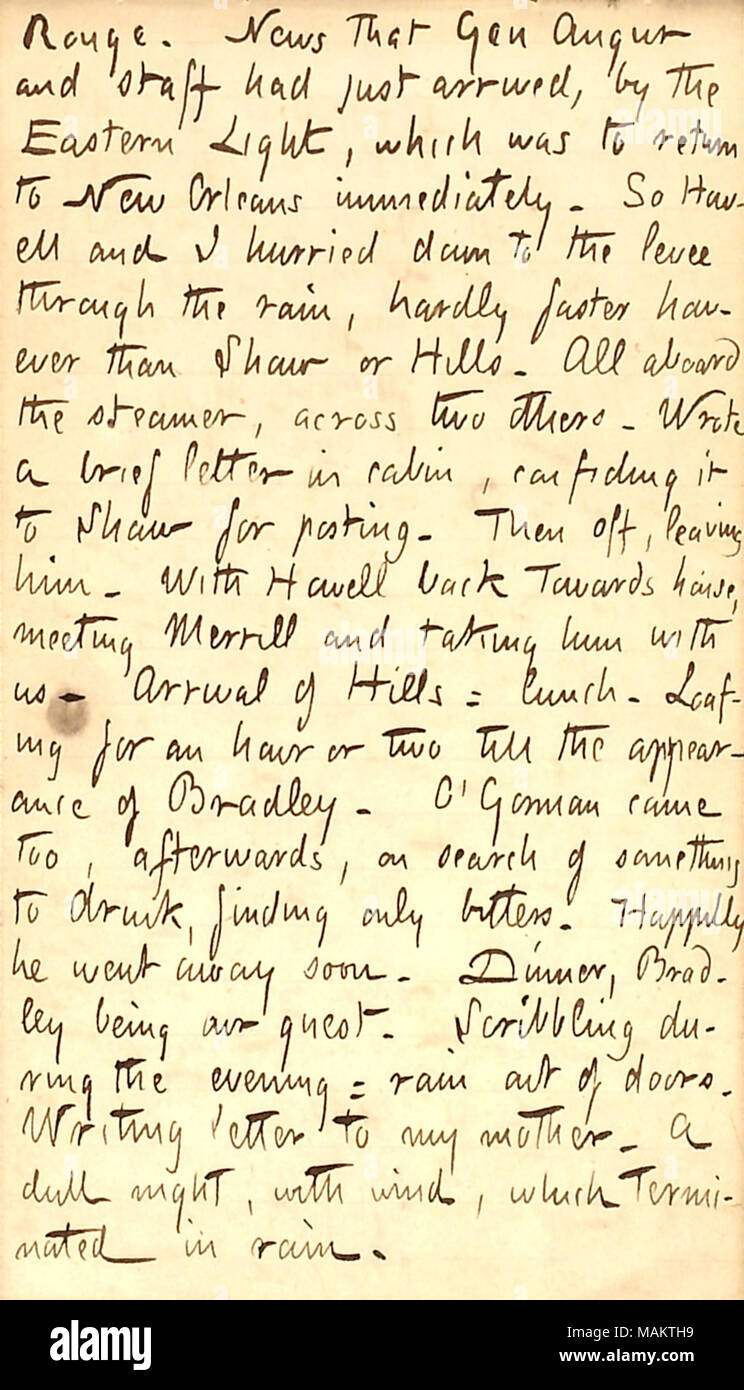 Rouge. News that Gen Augur
and staff had just arrived, by the
Eastern Light, which was to return
to New Orleans immediately. So How-
ell and I hurried down to the levee
through the rain, hardly faster how-
ever than Shaw or Hills. All aboard
the steamer, across two others. Wrote
a brief letter in cabin, confiding it
to Shaw for posting. Then off, leaving
him. With Howell back towards house,
meeting Merrill and taking him with
us. Arrival of Hills = lunch. Loaf-
ing for an hour or two till the appear-
ance of Bradley. O'Gorman came
too, afterwards, on search of something
to drink, finding only bitters. Happily
he went away soon. Dinner, Brad-
ley being our guest. Scribbling du-
ring the evening = rain out of doors.
Writing letter to my mother. A
dull night, with wind, which termi-
nated in rain.
alamy
Image ID: MAKTH9
www.alamy.com